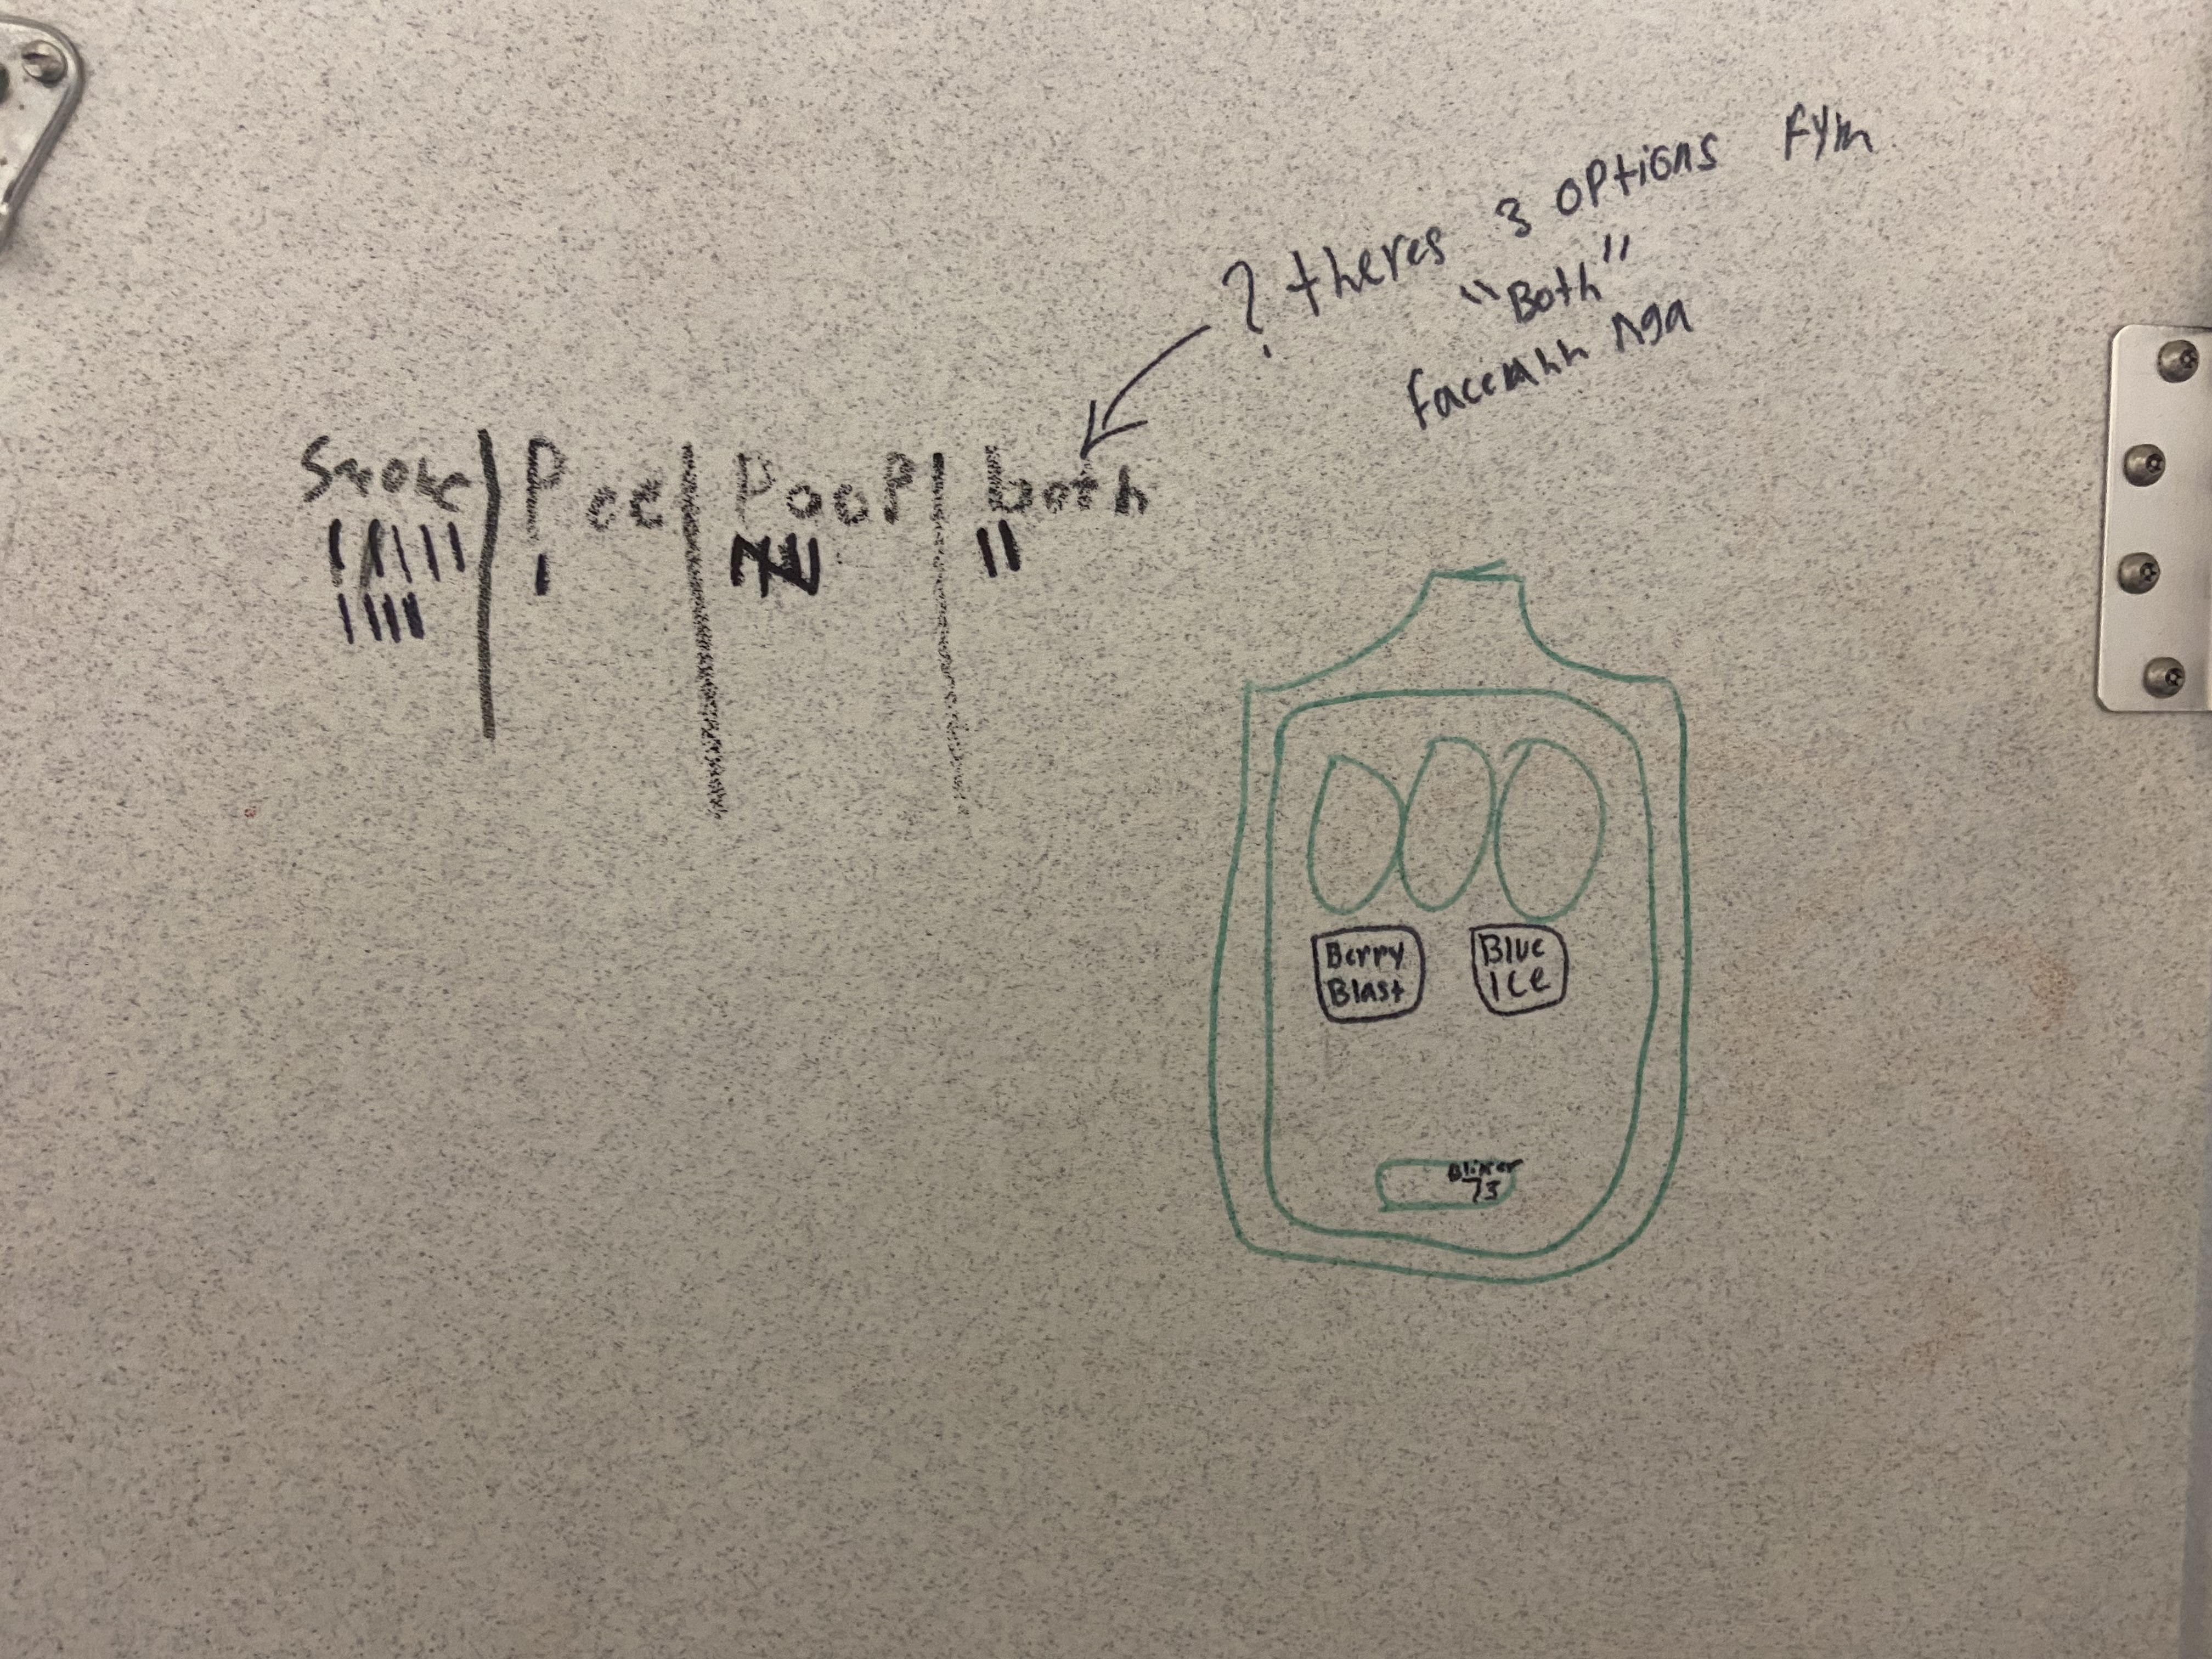 ? theres 3 options fym
"Both"
nga
Smoke Pee Poop both
Berry
Blast
Blue
Ice
73